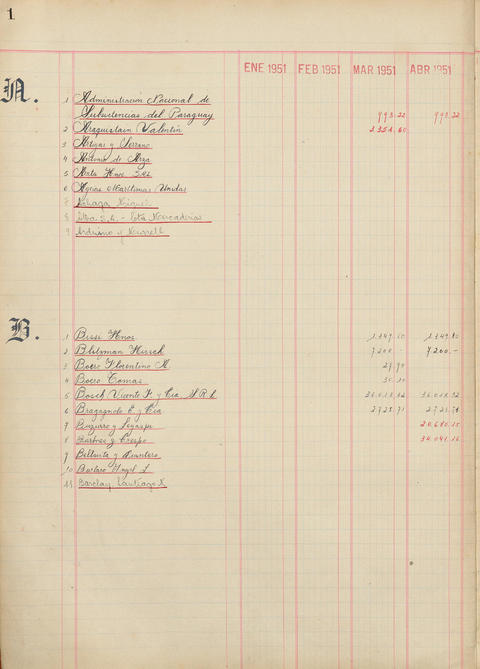 1
ENE 1951 FEB 1951 MAR 1951 ABR 1951
A.
1 Administración Nacional de
Subsistencias del Paraguay 993.22 993.22
2 Araquistain Valentin 2.351.60
3 Artigas y Serrano
4 Antonio de Arza
5 Arata Hnos. S.R.L.
6 Agcias Marítimas Unidas
7 Miguel
8 S.A. - Cta Mercaderías
9 Arduino y
B.
1 Bessi Hnos. 1.349.80 1.349.80
2 Blitzman Hersch 7.200.- 7.200.-
3 Boero Florentino 27.70
4 Boero Tomas
5 Bosch Vicente F. y Cia. S.R.L. 36.018.82 36.018.82
6 Bragagnolo E. y Cia 2.721.71 2.721.71
7 y Legarpe 20.680.15
8 y Crespo 34.041.16
9 Bellanta y
10 Angel L.
11 Barclay, Santiago